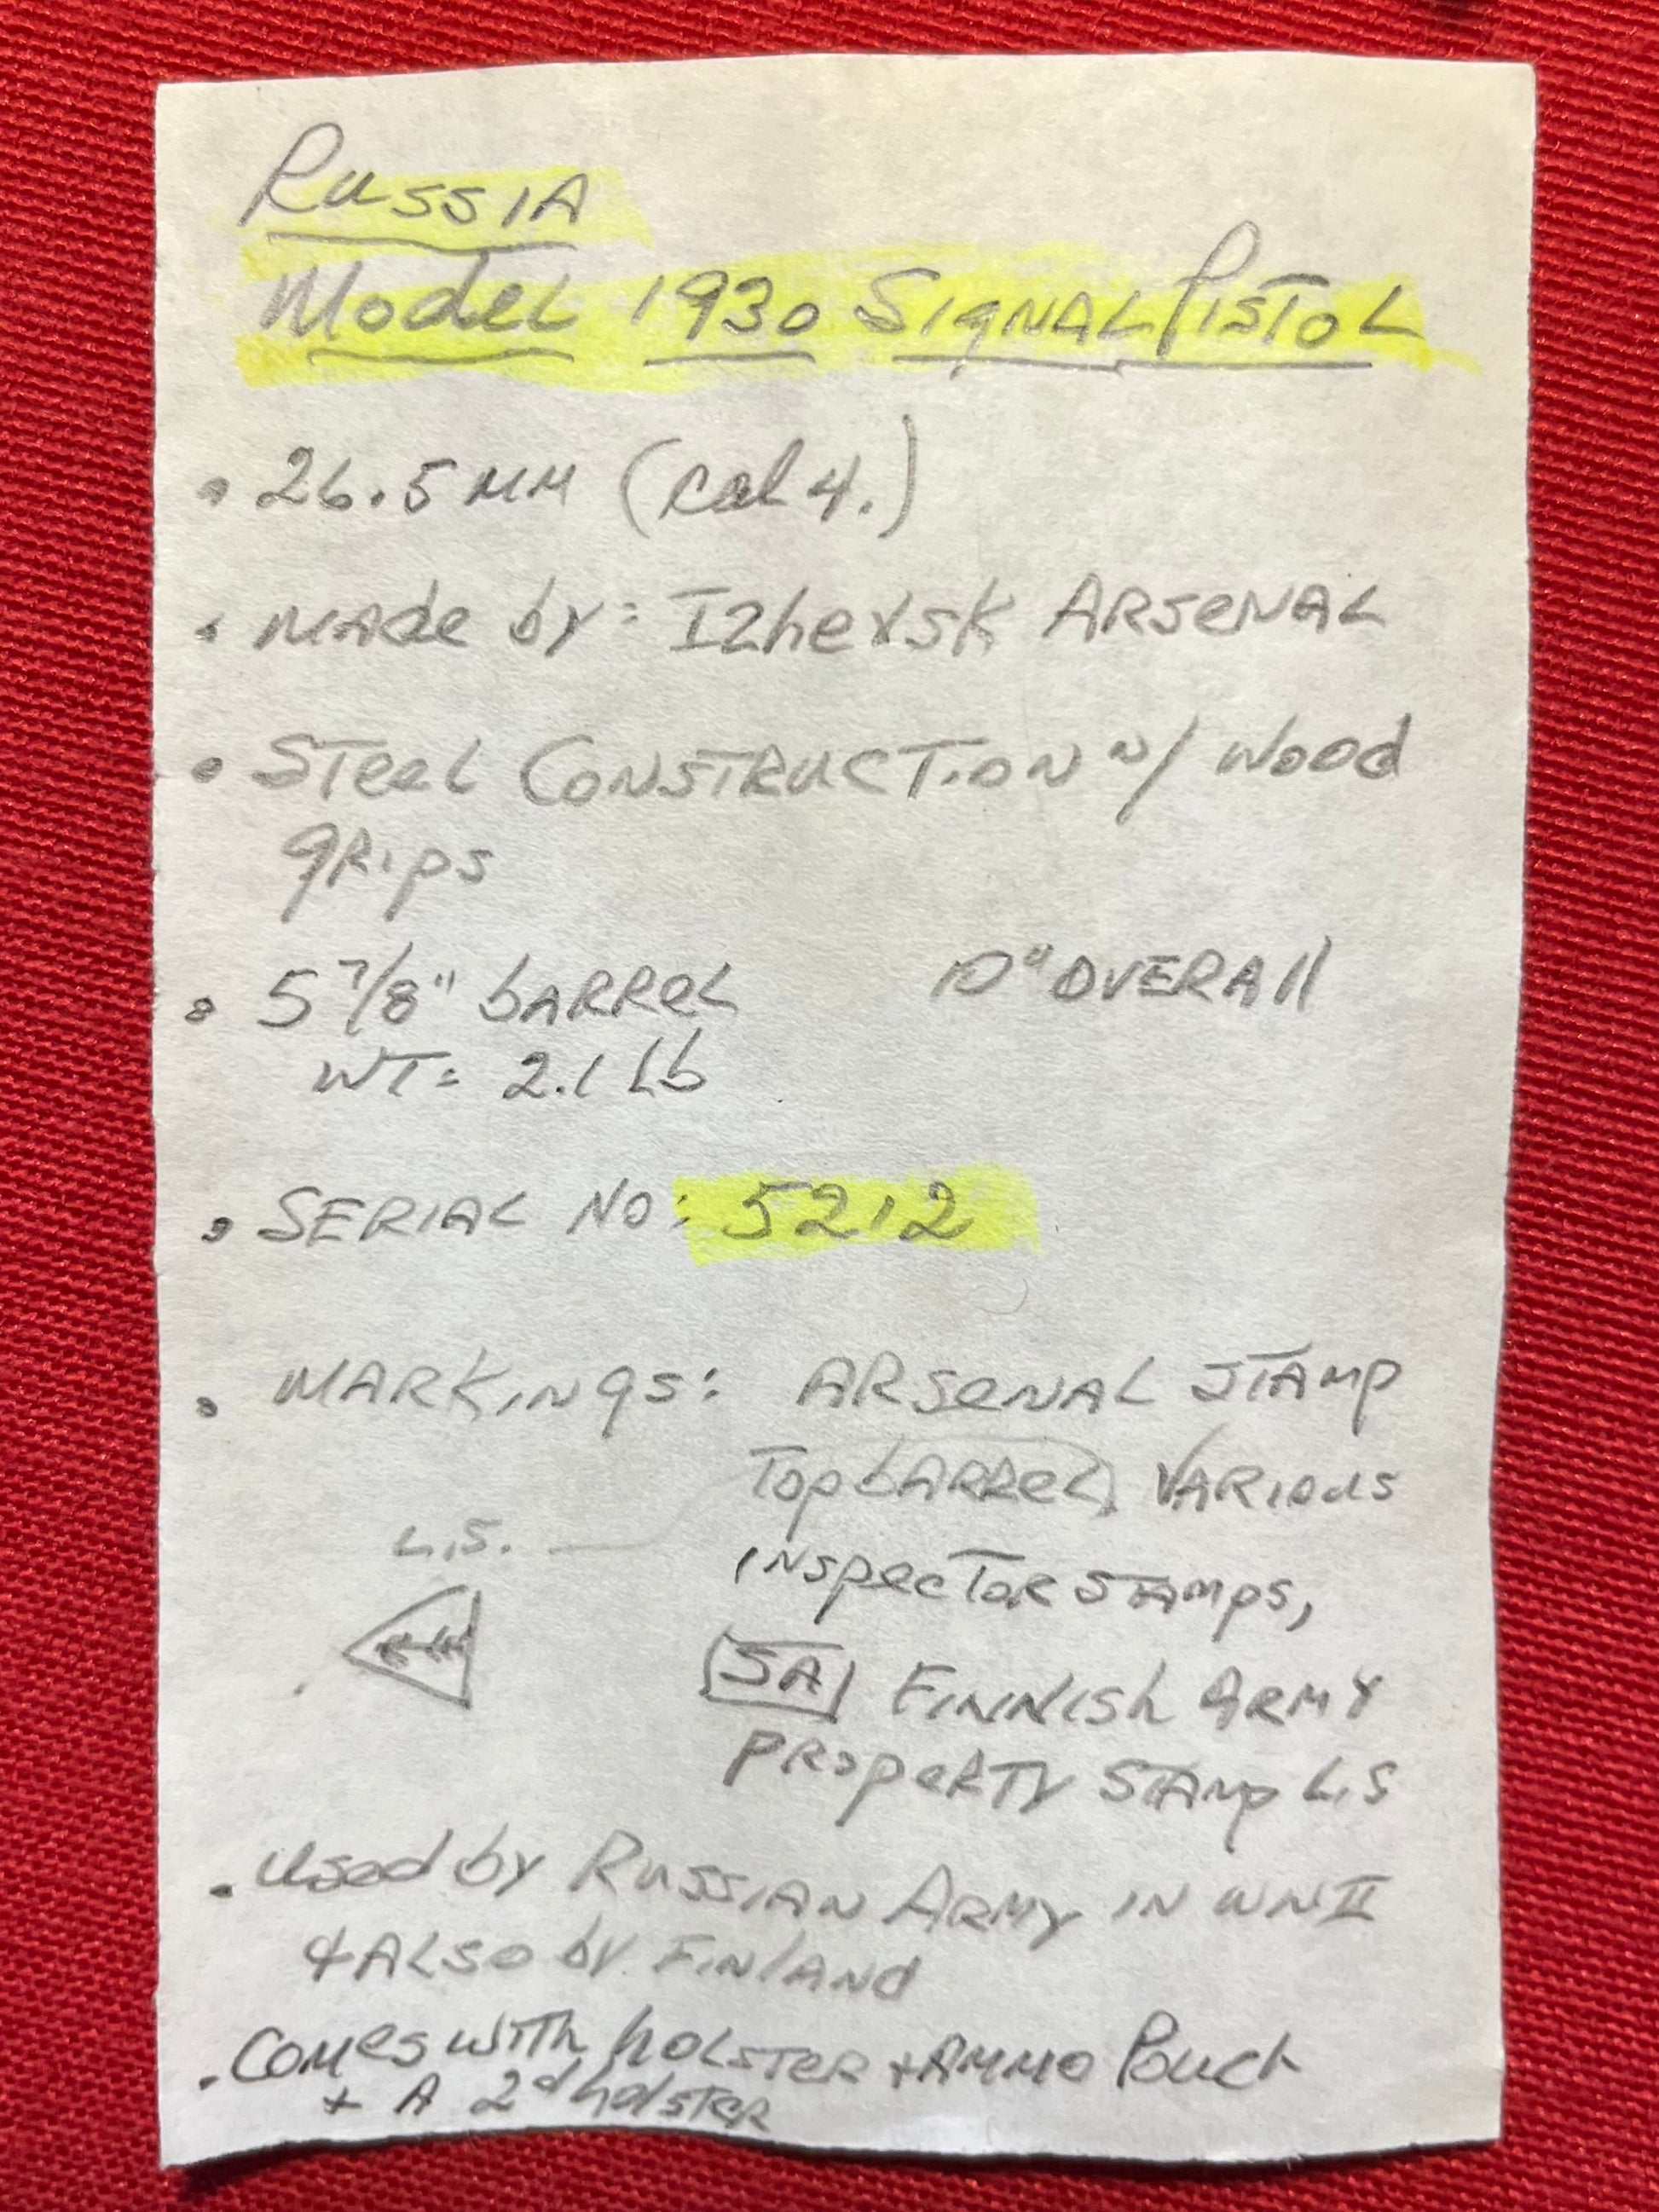 Russia
Model 1930 Signal Pistol
• 26.5 MM (Cal 4.)
• Made by: Izhevsk Arsenal
• Steel Construction w/ Wood
grips
• 5 7/8" barrel 10" OVERAll
WT= 2.1 Lb
• SERIAL NO: 5212
• MARKINgs: ARsenAL STAmp
Top bARReL, VARIOUS
INspecTOR STAmps,
L.S.
SA FINNISh ARMY
PROpeRTY STAmp L.S
• Used by RUSSIAN ARMy IN WWII
& ALSO by FINlANd
• COMes wiTh hOLSTeR + AMMO Pouch
+ A 2d holsTeR